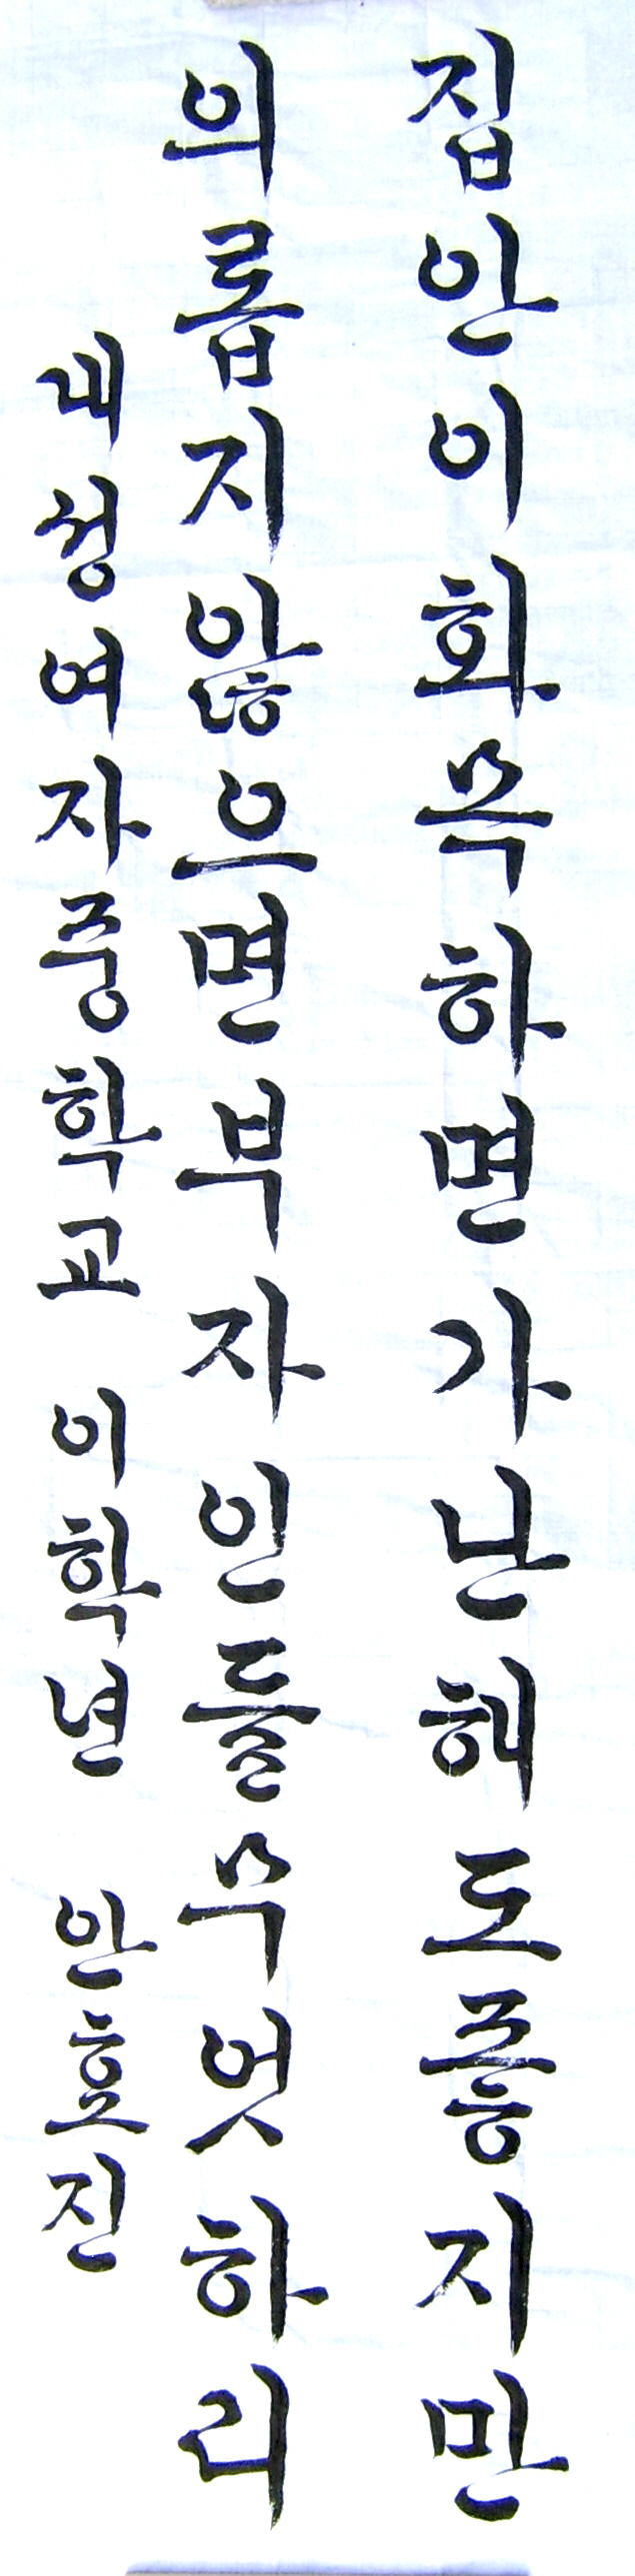 집안이화목하면가난해도좋지만
의롭지않으면부자인들무엇하리
내성여자중학교 이학년 안효진